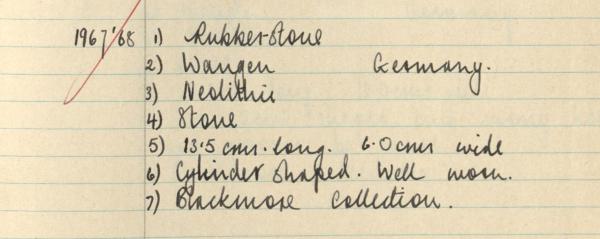 1967/'68 1) Rubber-Stone
2) Wangen Germany.
3) Neolithic
4) Stone
5) 13.5 cms. long. 6.0 cms wide
6) Cylinder shaped. Well worn.
7) Blackmore Collection.